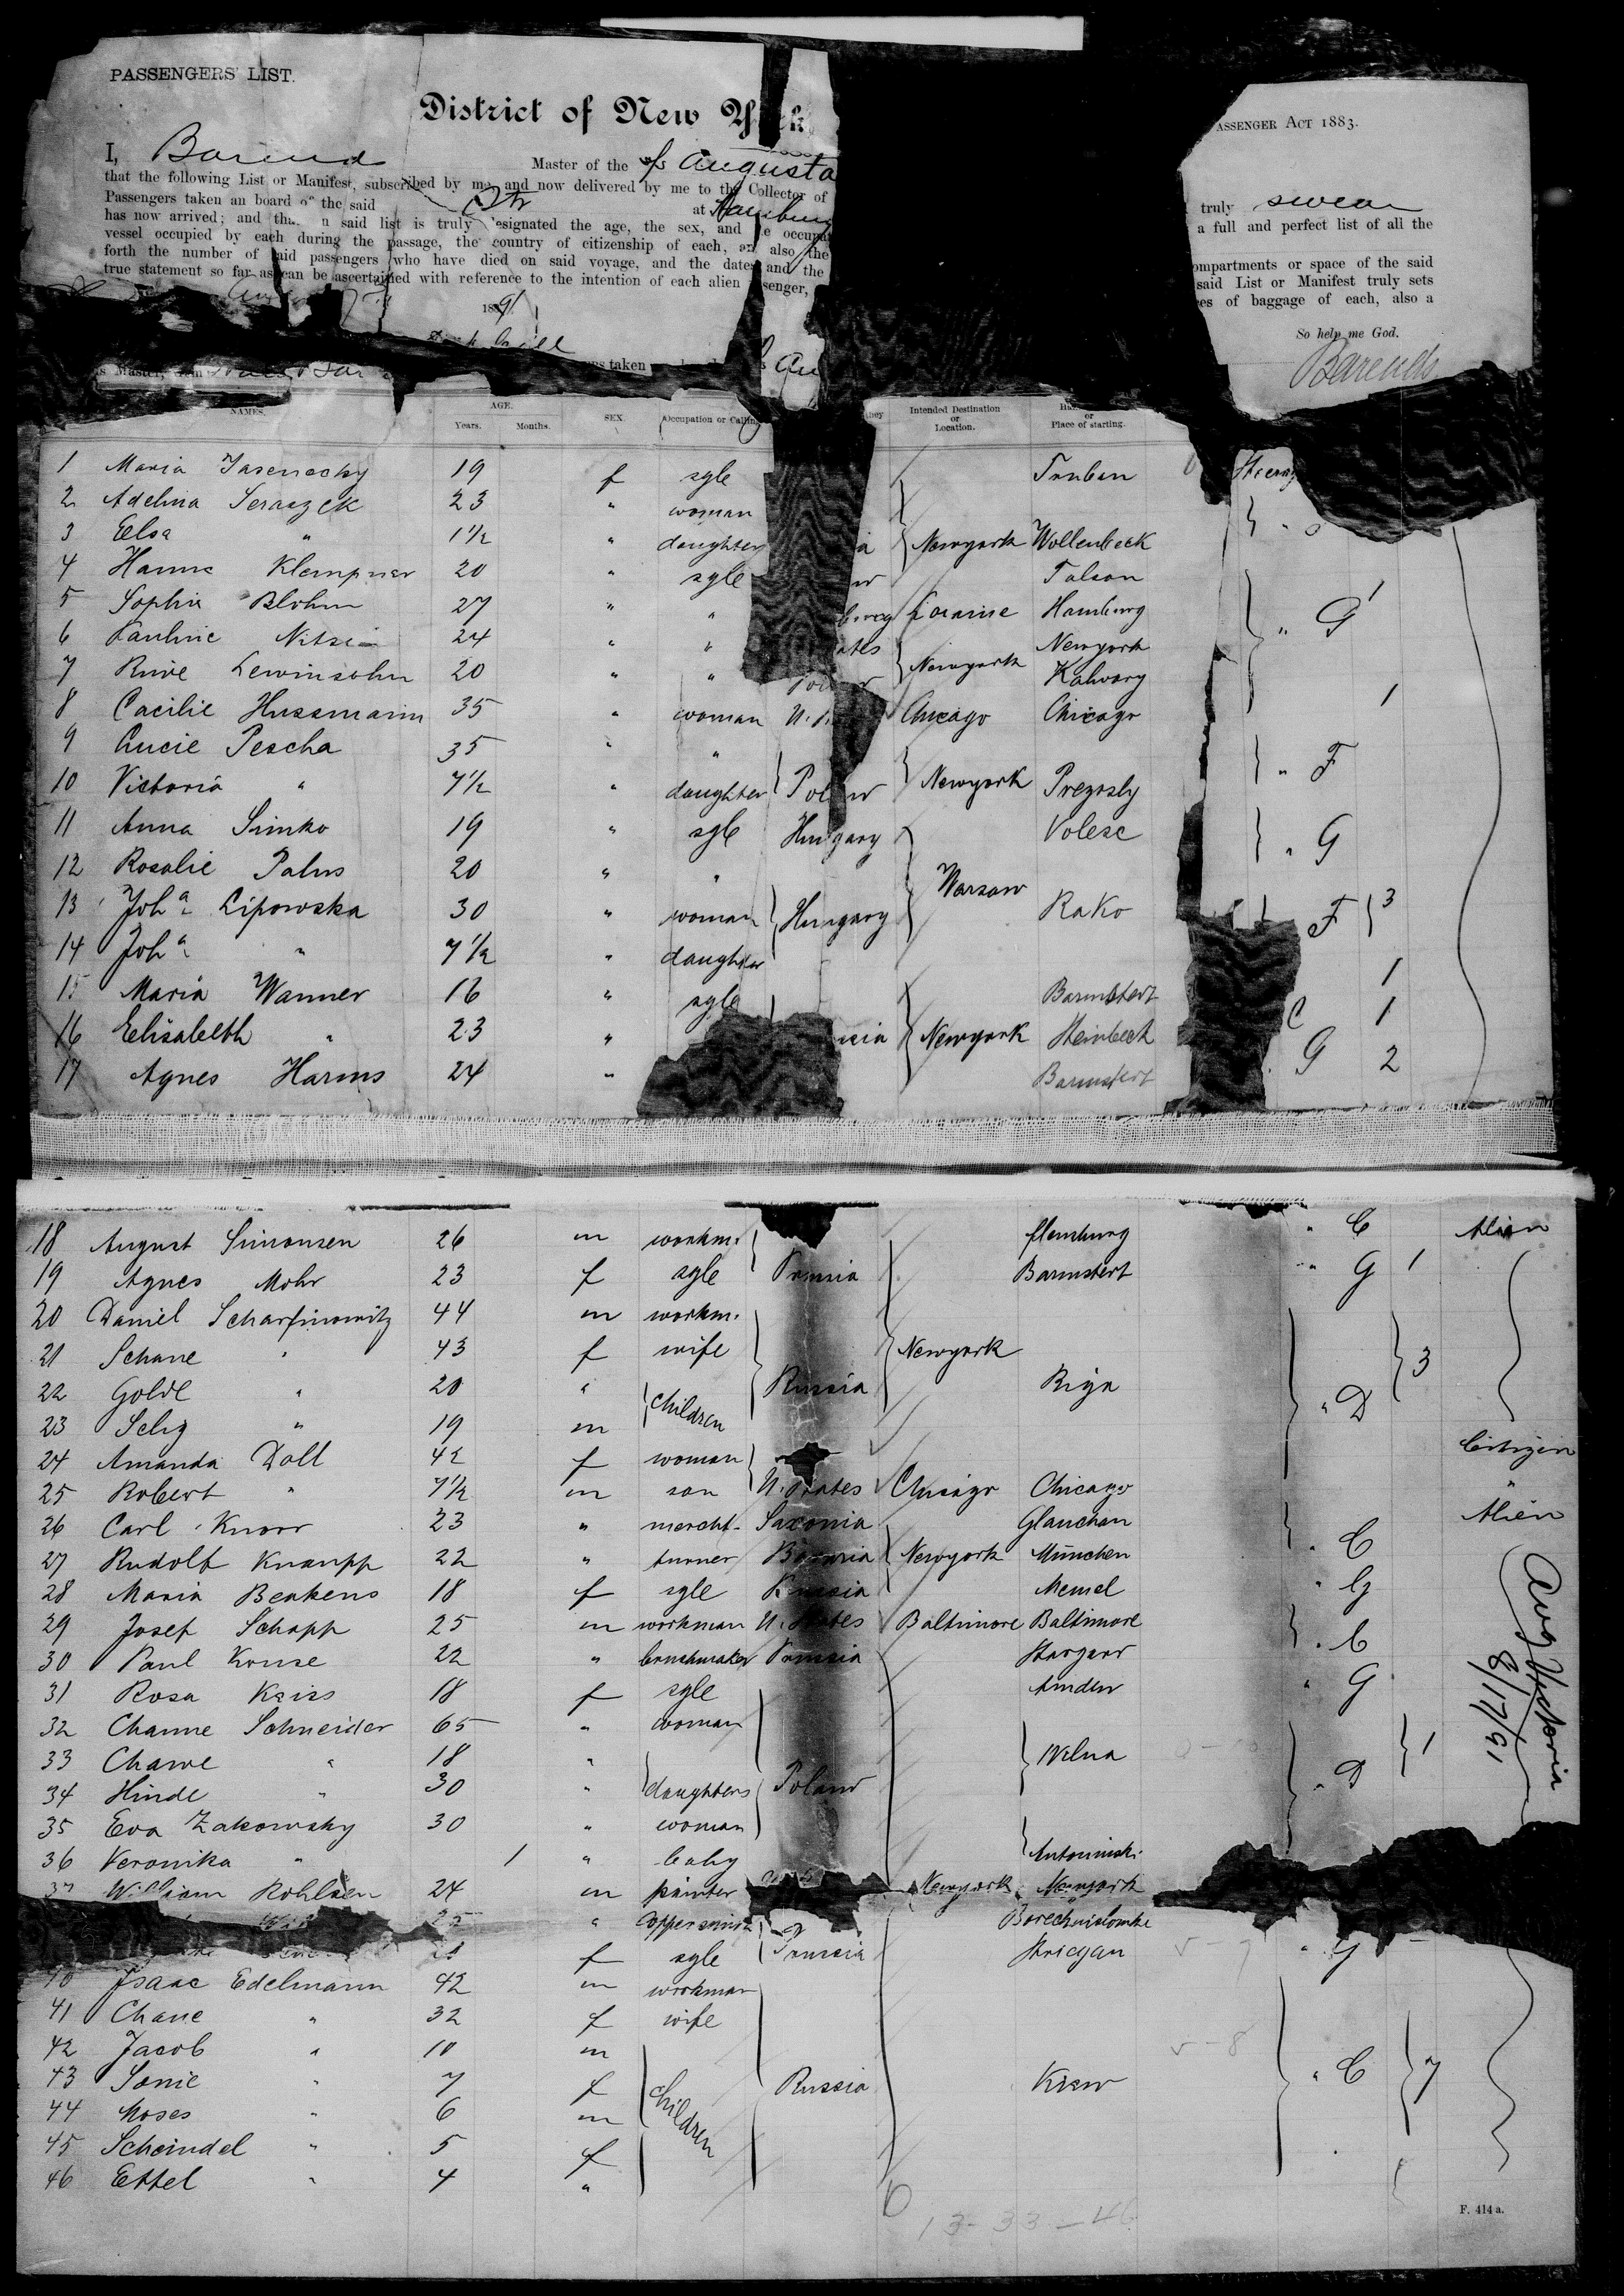 PASSENGERS' LIST.
District of New Y k
ASSENGER ACT 1883.
I, Barend Master of the Augusta
truly swear
that the following List or Manifest, subscribed by me and now delivered by me to the Collector of
a full and perfect list of all the
Passengers taken an board of the said at Hamburg
has now arrived; and tha n said list is truly designated the age, the sex, and e occupa
ompartments or space of the said
vessel occupied by each during the passage, the country of citizenship of each, an also the
said List or Manifest truly sets
forth the number of said passengers who have died on said voyage, and the dates and the
es of baggage of each, also a
true statement so far as can be ascertained with reference to the intention of each alien senger,
So help me God.
1891
Barends
s Master, taken
NAMES. AGE. Years. Months. SEX. Occupation or Calling Intended Destination or Location. or Place of starting.
1 Maria 19 f sgle Truben
2 Adelina Seraszek 23 " woman
3 Elsa " 1 1/2 " daughter Newyork Wollenbeck
4 Hanne Klempner 20 " sgle Talson
5 Sophie Blohm 27 " " Hamburg G 1
6 Pauline 24 " " ates Newyork
7 Rive Lewinsohn 20 " " Newyork Kalwary
8 Cacilie Hussmann 35 " woman Chicago Chicago 1
9 Lucie Pescha 35 " " " F
10 Victoria " 7 1/2 " daughter Newyork Prezosly
11 Anna Simko 19 " sgle Hungary Volesc " G
12 Rosalie Palus 20 " " Warsaw
13 Joha Lipowska 30 " woman Hungary Rako F 3
14 Joha " 7 1/2 " daughter
15 Maria Wanner 16 " sgle Barmstert 1
16 Elisabeth " 23 " Newyork Heinbeck C 1
17 Agnes Harms 24 " Barmstert G 2
18 August Simonsen 26 m workm. flensburg " C Alien
19 Agnes Mohr 23 f sgle Prussia Barmstert " G 1
20 Daniel Scharfinowitz 44 m workm.
21 Schane " 43 f wife Newyork 3
22 Golde " 20 " children Russia Riga " D
23 Selig " 19 m
24 Amanda Doll 42 f woman Citizen
25 Robert " 7 1/2 m son U. States Chicago Chicago "
26 Carl Knorr 23 " mercht. Saxonia Glauchau Alien
27 Rudolf Knaupp 22 " turner Bavaria Newyork München " C
28 Maria Benkens 18 f sgle Memel " G
29 Josef Schopp 25 m workman U. States Baltimore Baltimore " C
30 Paul Kruse 22 " brushmaker Prussia Stargard
31 Rosa Kriss 18 f sgle Minden " G
32 Channe Schneider 65 " woman
33 Chawe " 18 " Wilna 1
34 Hinde " 30 " daughters Poland " D
35 Eva Zakowsky 30 " woman
36 Veronika " 1 " baby Antoninski
37 William Rohlsen 24 m painter Newyork Newyork
25 " Coppersmith
21 f sgle Prussia Striegau " G
40 Isaac Edelmann 42 m workman
41 Chane " 32 f wife
42 Jacob " 10 m
43 Sonie " 7 f children Russia Kiew " C 7
44 Moses " 6 m
45 Scheindel " 5 f
46 Ettel " 4 "
Aug Victoria
8/17/91
13-33-46
F. 414 a.